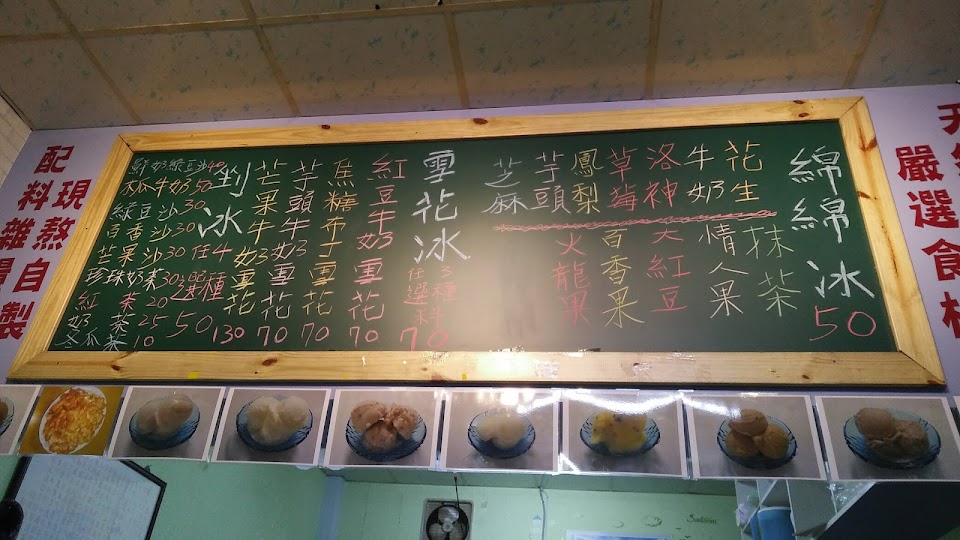 嚴選食
綿綿冰 50
花生
牛奶
洛神
草莓
鳳梨
芋頭
芝麻
抹茶
情人果
大紅豆
百香果
火龍果
雪花冰
3種料
任選
70
紅豆牛奶雪花 70
焦糖布丁雪花 70
芋頭牛奶雪花 70
芒果牛奶雪花 130
剉冰
4種
任選
50
鮮奶綠豆沙40
木瓜牛奶50
綠豆沙30
百香沙30
芒果沙30
珍珠奶茶30
紅茶20
奶茶25
冬瓜茶10
現熬自製
配料雜